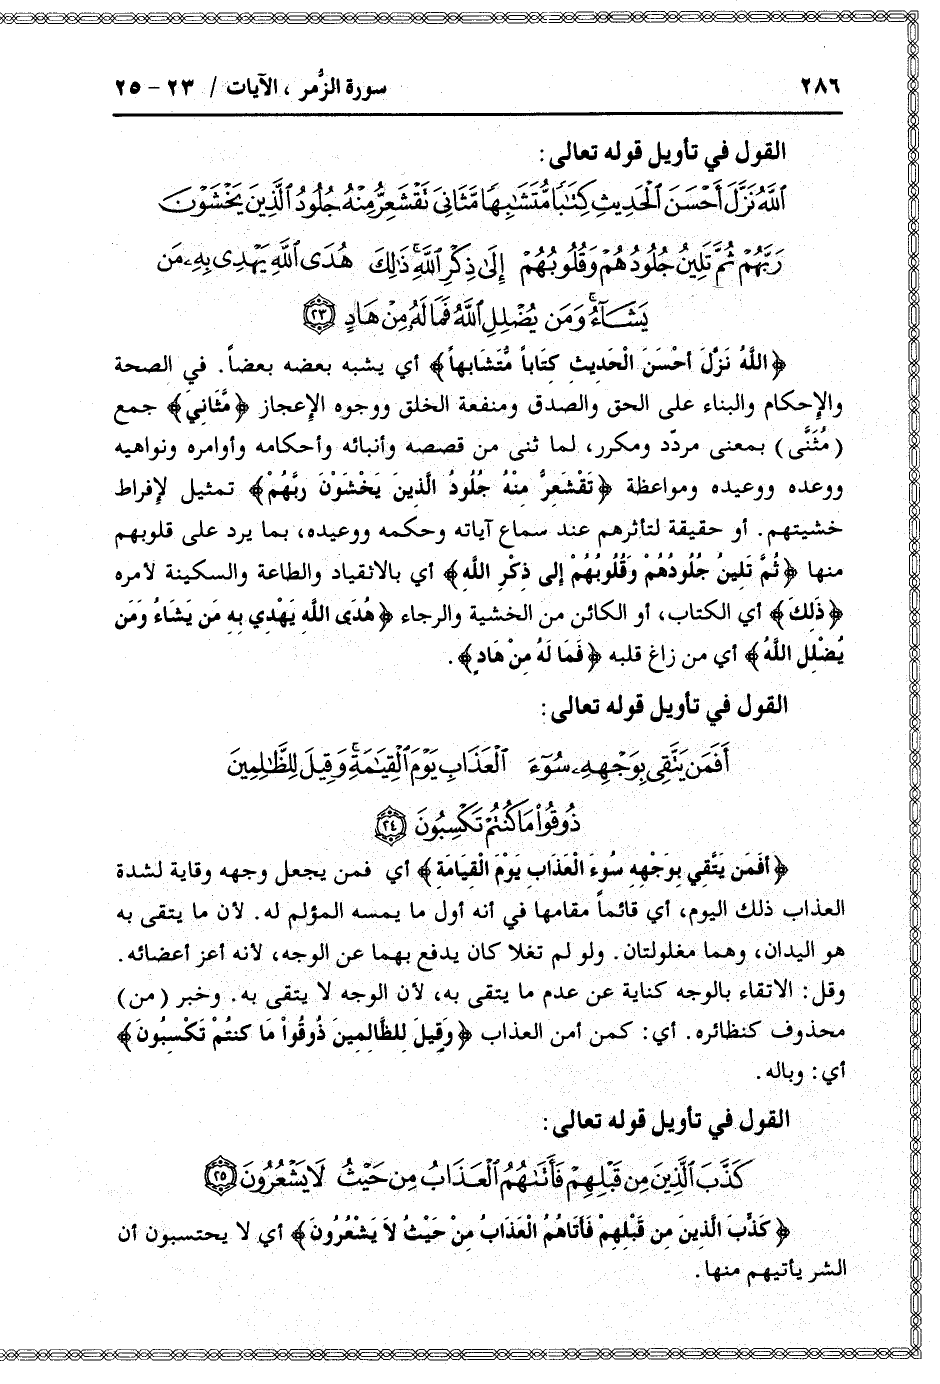 ٢٨٦ سورة الزُّمر ، الآيات / ٢٣ - ٢٥
القول في تأويل قوله تعالى :
ٱللَّهُ نَزَّلَ أَحْسَنَ ٱلْحَدِيثِ كِتَٰبًا مُّتَشَٰبِهًا مَّثَانِيَ تَقْشَعِرُّ مِنْهُ جُلُودُ ٱلَّذِينَ يَخْشَوْنَ
رَبَّهُمْ ثُمَّ تَلِينُ جُلُودُهُمْ وَقُلُوبُهُمْ إِلَىٰ ذِكْرِ ٱللَّهِ ۚ ذَٰلِكَ هُدَى ٱللَّهِ يَهْدِى بِهِۦ مَن
يَشَآءُ ۚ وَمَن يُضْلِلِ ٱللَّهُ فَمَا لَهُۥ مِنْ هَادٍ ٢٣
﴿اللَّهُ نَزَّلَ أَحْسَنَ الْحَدِيثِ كِتَاباً مُّتَشَابِهاً﴾ أي يشبه بعضه بعضاً. في الصحة
والإحكام والبناء على الحق والصدق ومنفعة الخلق ووجوه الإعجاز ﴿مَّثَانِيَ﴾ جمع
(مُثَنَّى) بمعنى مردّد ومكرر، لما ثنى من قصصه وأنبائه وأحكامه وأوامره ونواهيه
ووعده ووعيده ومواعظة ﴿تَقْشَعِرُّ مِنْهُ جُلُودُ الَّذِينَ يَخْشَوْنَ رَبَّهُمْ﴾ تمثيل لإفراط
خشيتهم. أو حقيقة لتأثرهم عند سماع آياته وحكمه ووعيده، بما يرد على قلوبهم
منها ﴿ثُمَّ تَلِينُ جُلُودُهُمْ وَقُلُوبُهُمْ إِلى ذِكْرِ اللَّهِ﴾ أي بالانقياد والطاعة والسكينة لأمره
﴿ذَلِكَ﴾ أي الكتاب، أو الكائن من الخشية والرجاء ﴿هُدَى اللَّهِ يَهْدِي بِهِ مَن يَشَاءُ وَمَن
يُضْلِلِ اللَّهُ﴾ أي من زاغ قلبه ﴿فَمَا لَهُ مِنْ هَادٍ﴾.
القول في تأويل قوله تعالى :
أَفَمَن يَتَّقِى بِوَجْهِهِۦ سُوٓءَ ٱلْعَذَابِ يَوْمَ ٱلْقِيَٰمَةِ ۚ وَقِيلَ لِلظَّٰلِمِينَ
ذُوقُوا۟ مَا كُنتُمْ تَكْسِبُونَ ٢٤
﴿أَفَمَن يَتَّقِي بِوَجْهِهِ سُوءَ الْعَذَابِ يَوْمَ الْقِيَامَةِ﴾ أي فمن يجعل وجهه وقاية لشدة
العذاب ذلك اليوم، أي قائماً مقامها في أنه أول ما يمسه المؤلم له. لأن ما يتقى به
هو اليدان، وهما مغلولتان. ولو لم تغلا كان يدفع بهما عن الوجه، لأنه أعز أعضائه.
وقل: الاتقاء بالوجه كناية عن عدم ما يتقى به، لأن الوجه لا يتقى به. وخبر (من)
محذوف كنظائره. أي: كمن أمن العذاب ﴿وَقِيلَ لِلظَّالِمِينَ ذُوقُواْ مَا كنتُمْ تَكْسِبُونَ﴾
أي: وباله.
القول في تأويل قوله تعالى :
كَذَّبَ ٱلَّذِينَ مِن قَبْلِهِمْ فَأَتَىٰهُمُ ٱلْعَذَابُ مِنْ حَيْثُ لَا يَشْعُرُونَ ٢٥
﴿كَذَّبَ الَّذِينَ مِن قَبْلِهِمْ فَأَتَاهُمُ الْعَذَابُ مِنْ حَيْثُ لاَ يَشْعُرُونَ﴾ أي لا يحتسبون أن
الشر يأتيهم منها.